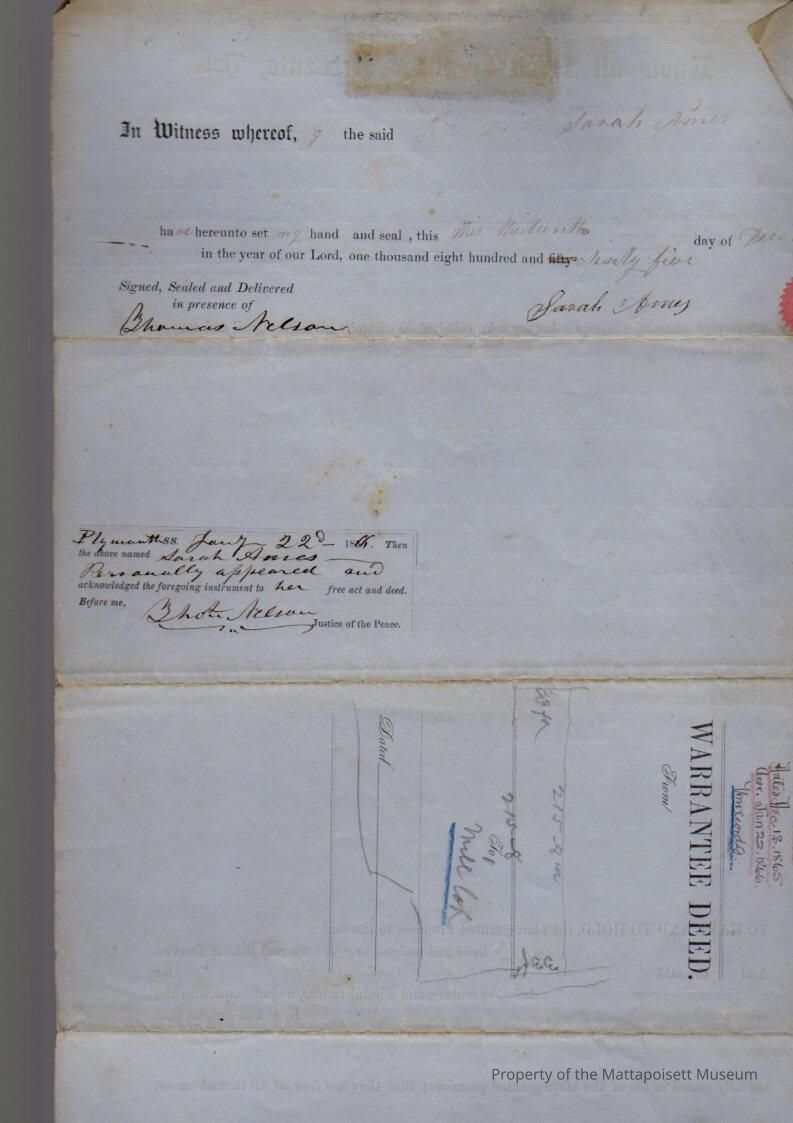 In Witness whereof, I the said Sarah Ames
have hereunto set my hand and seal, this this thirteenth day of Dec
in the year of our Lord, one thousand eight hundred and fifty sixty five
Signed, Sealed and Delivered
in presence of
Sarah Ames
Thomas Nelson
Plymouth SS. Jany 22d 1866. Then
the above named Sarah Ames
Personally appeared and
acknowledged the foregoing instrument to her free act and deed.
Before me,
Thos Nelson
Justice of the Peace.
Dated Dec. 13. 1865
Jan 22. 1866.
Unrecorded
WARRANTEE DEED.
From
215-8
To
Mill Lot
Dated
Property of the Mattapoisett Museum